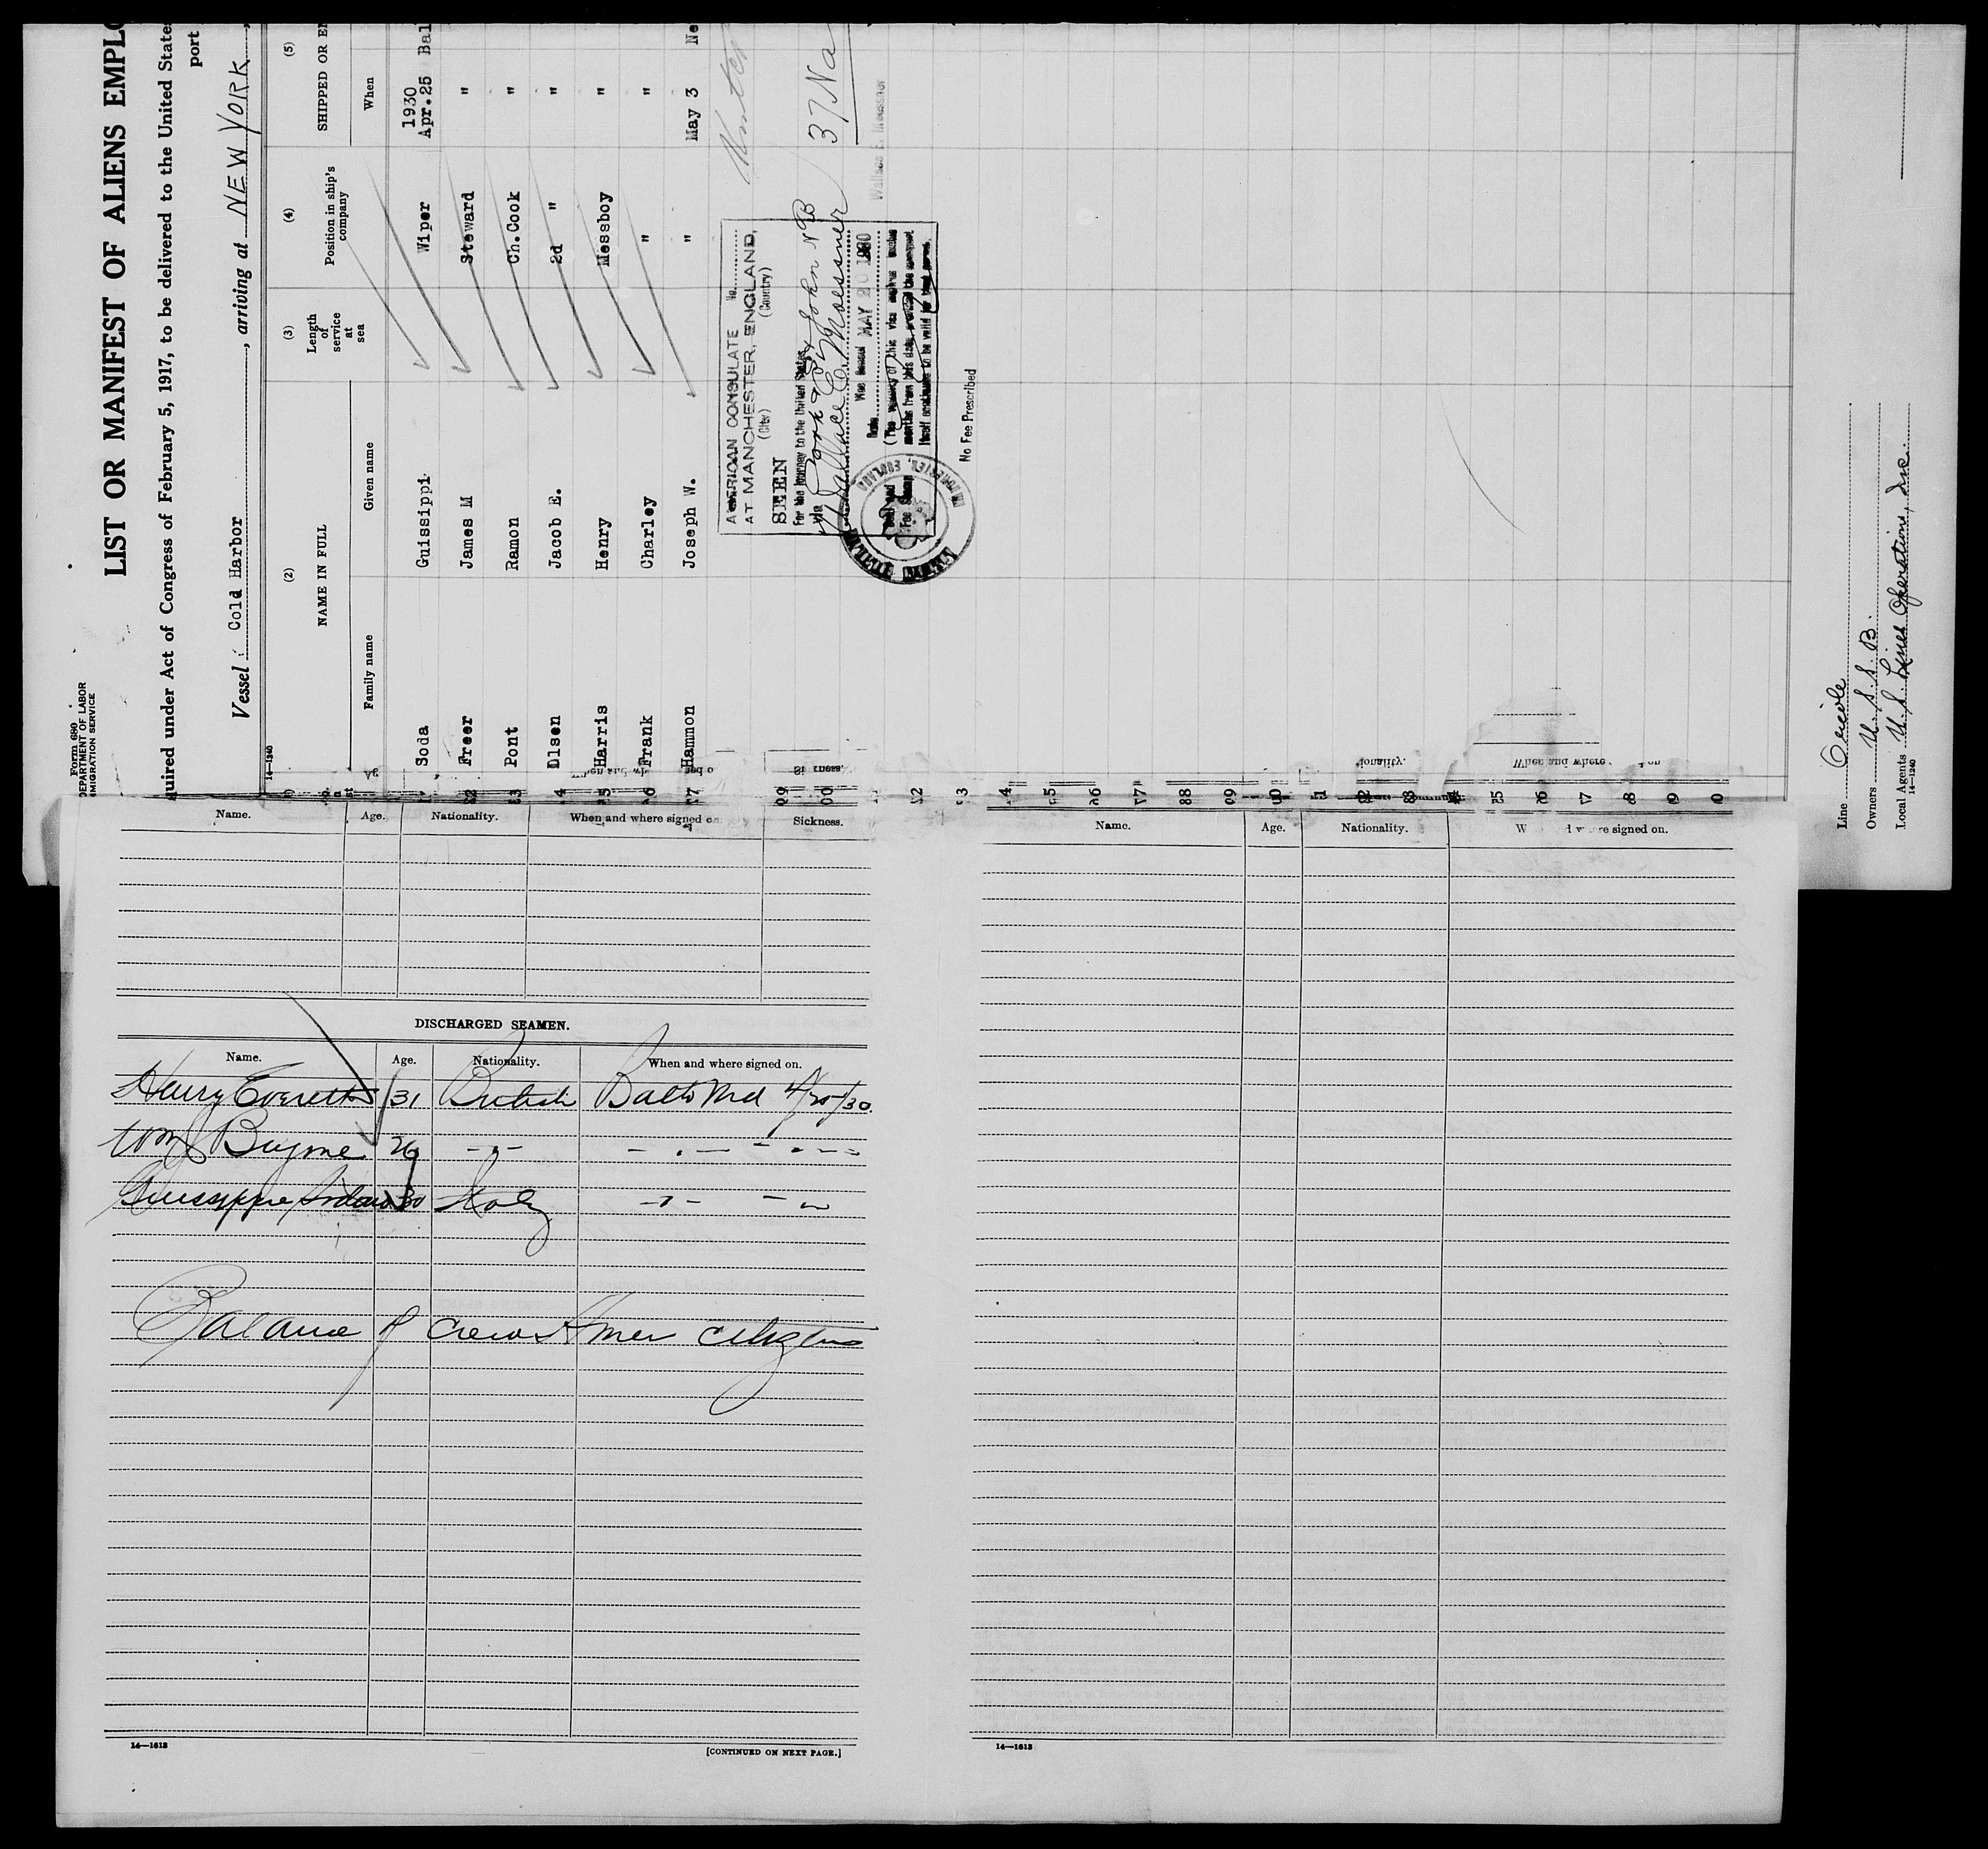 Form 680
DEPARTMENT OF LABOR
IMMIGRATION SERVICE
LIST OR MANIFEST OF ALIENS EMPLO
quired under Act of Congress of February 5, 1917, to be delivered to the United State
port
Vessel Cold Harbor, arriving at NEW YORK,
14—1240
(2) (3) (4) (5)
NAME IN FULL Length of service at sea Position in ship's company SHIPPED OR EN
Family name Given name When
Soda Guissippi Wiper 1930 Apr.25 Bal
Freer James M Steward "
Pont Ramon Ch.Cook "
Dlsen Jacob E. 2d " "
Harris Henry Messboy "
Frank Charley " "
Hammon Joseph W. " May 3 Ne
AMERICAN CONSULATE No.
AT MANCHESTER, ENGLAND,
(City) (Country)
SEEN
For the journey to the United States,
via
Wallace E. Moessner
Vice Consul MAY 20 1930
Date
(The validity of this visa expires twelve
months from this date, provided the passport
itself continues to be valid for that period.
Seal and
Fee Stamp
No Fee Prescribed
37 Na
Wallace E. Moessner
Line Oriole
Owners U.S.S.B.
Local Agents U.S. Lines Operations, Inc.
14—1240
Name. Age. Nationality. When and where signed o Sickness.
DISCHARGED SEAMEN.
Name. Age. Nationality. When and where signed on.
Henry Everetts 31 British Balto Md 4/25/30.
Wm J Buyme 26 - " -
Guissippe 30 Italy
Balance of crew Amer citizens
14—1613
[CONTINUED ON NEXT PAGE.]
Name. Age. Nationality. W re signed on.
14—1613